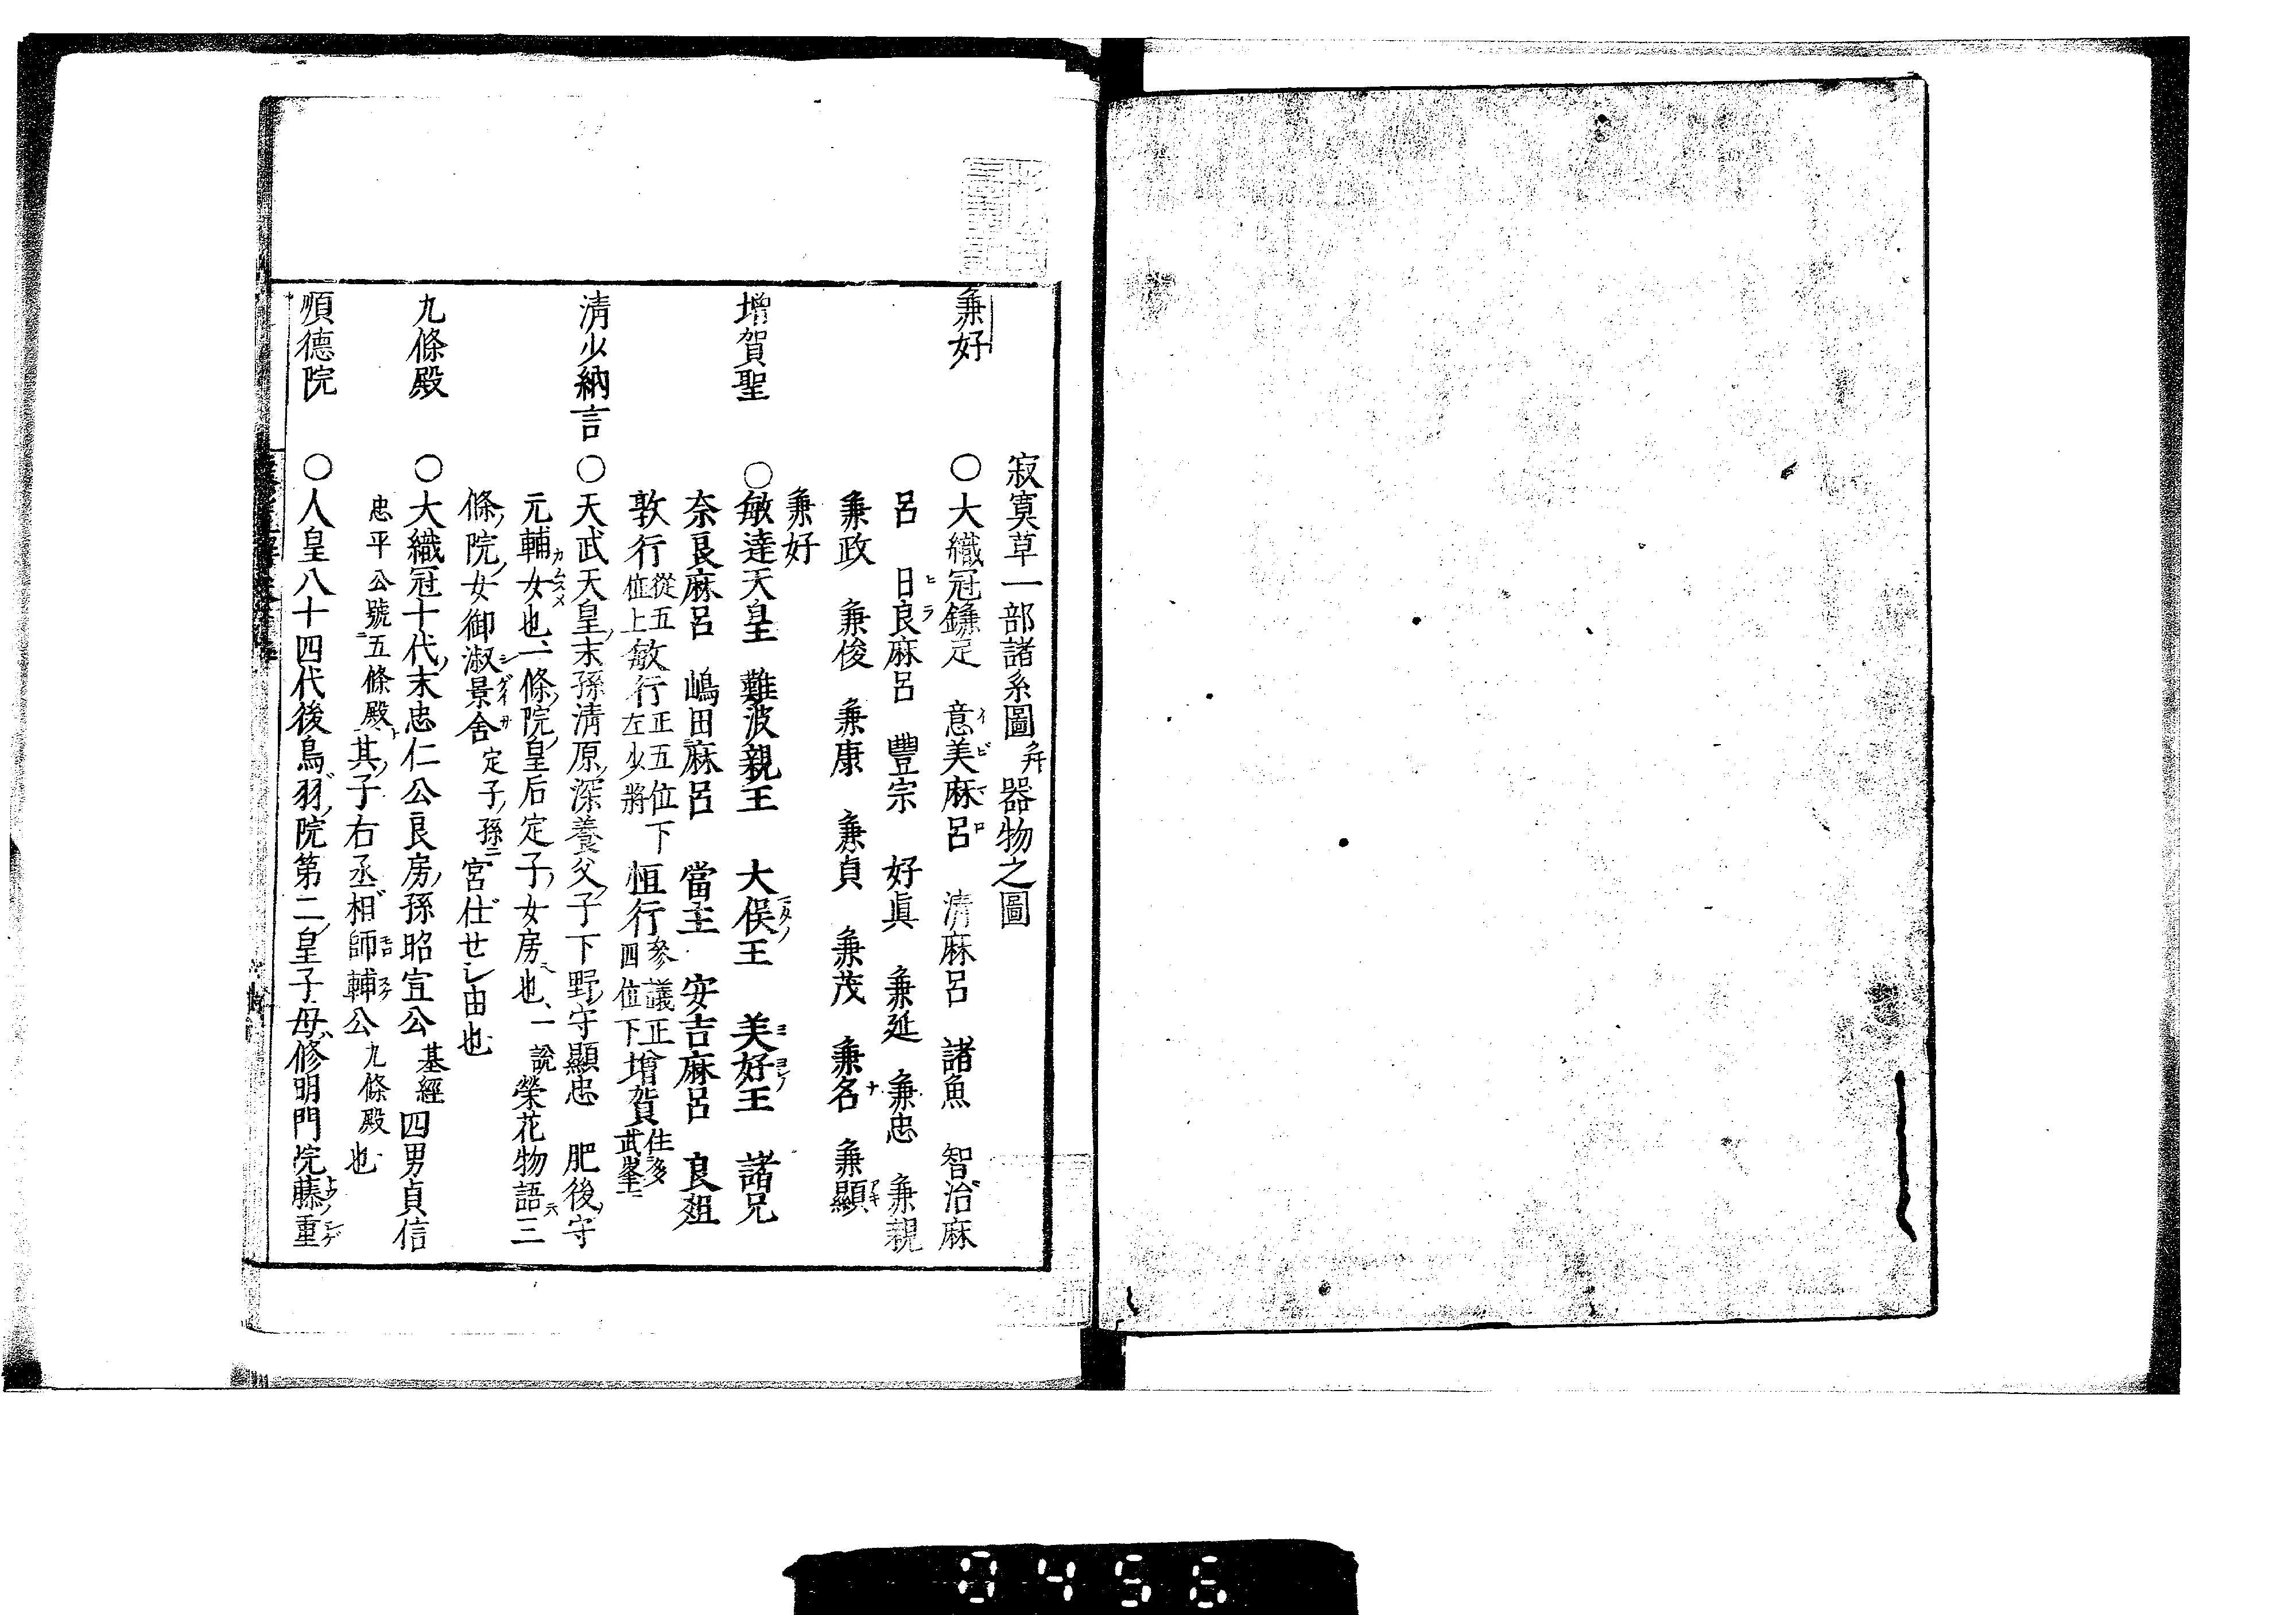 寂寞草一部諸系圖并器物之圖
兼好
○大織冠鎌足 意美麻呂 清麻呂 諸魚 智治麻
イビマロ
呂 日良麻呂 豐宗 好眞 兼延 兼忠 兼親
ヒラ
兼政 兼俊 兼康 兼貞 兼茂 兼名 兼顯
ナ アキ
兼好
增賀聖
○敏達天皇 難波親王 大俣王 美好王 諸兄
奈良麻呂 嶋田麻呂 當主 安吉麻呂 良殖
敦行從五位上敏行正五位下左少將 恒行參議正四位下增賀住多武峯ニ
清少納言
○天武天皇ノ末孫清原ノ深養父ノ子下野ノ守顯忠 肥後ノ守
元輔カムスメ女也一條ノ院ノ皇后定子ノ女房也、一說榮花物語ニ三
條ノ院ノ女御淑景舍シゲイサ定子ノ孫ニ宮仕せし由也
九條殿
○大織冠十代ノ末忠仁公良房ノ孫昭宣公基經四男貞信
忠平公號ニ五條殿ト其ノ子右丞相師輔モロスケ公九條殿也
順德院
○人皇八十四代後鳥羽ノ院第二ノ皇子母修明門院藤トウノ重シゲ
0456